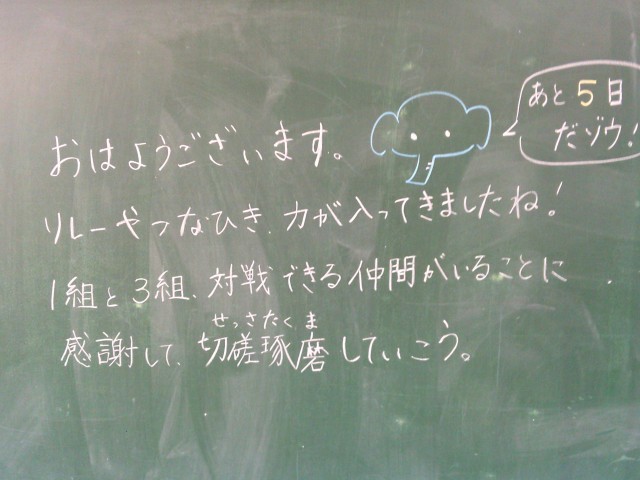 おはようございます。
あと5日
だゾウ!
リレーやつなひき、力が入ってきましたね!
1組と3組、対戦できる仲間がいることに
せっさたくま
感謝して、切磋琢磨していこう。